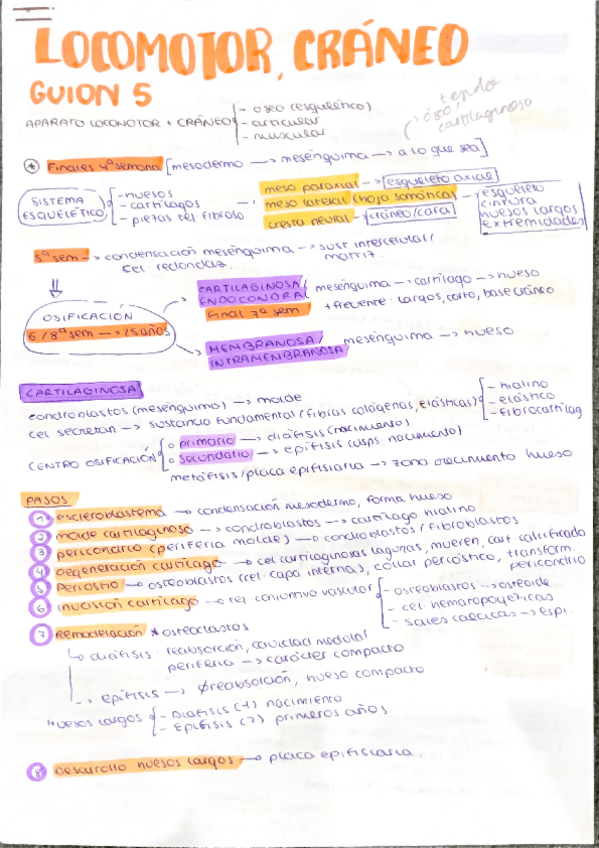 LOCOMOTOR, CRÁNEO
GUION 5
tejido
óseo,
cartilaginoso
APARATO LOCOMOTOR + CRÁNEO
- óseo (esquelético)
- articular
- muscular
* Finales 4ª semana [mesodermo → mesénquima → a lo que sea]
SISTEMA ESQUELÉTICO
- huesos
- cartílagos
- piezas tej fibroso
meso paraxial → esqueleto axial
meso lateral (hoja somática) - esqueleto cintura huesos largos extremidades
cresta neural - cráneo/cara
5ª sem → condensación mesénquima → sust intercelular/
cel redondas. matriz.
⇓
OSIFICACIÓN
6/8ª sem → 25 años
CARTILAGINOSA/ mesénquima → cartílago → hueso
ENDOCONDRAL
Final 7ª sem + frecuente: largos, corto, base cráneo
MEMBRANOSA/ mesénquima → hueso
INTRAMEMBRANOSA
CARTILAGINOSA
condroblastos (mesénquima) → molde
cel secretan → sustancia fundamental (fibras colágenas, elásticas)
- hialino
- elástico
- fibrocartílag
CENTRO OSIFICACIÓN
○ primario → diáfisis (nacimiento)
○ secundario → epífisis
metáfisis/placa epifisiaria → zona crecimiento hueso
PASOS
1 escleroblastema → condensación mesodermo, forma hueso
2 molde cartilaginoso → condroblastos → cartílago hialino
3 pericondrio (periferia molde) → condroblastos/fibroblastos
4 Degeneración cartílago → cel cartilaginosas lagunas, mueren, cart. calcificado
5 Periostio → osteoblastos (cel. capa interna), collar perióstico, transform. pericondrio
6 invasión cartílago → tej conjuntivo vascular
- osteoblastos → osteoide
- cel. hematopoyéticas
- sales cálcicas → espi.
7 Remodelación * osteoclastos
↳ diáfisis: reabsorción, cavidad medular
periferia → carácter compacto
→ epífisis → Øreabsorción, hueso compacto
Huesos largos
- Diáfisis (1) nacimiento
- Epífisis (2) primeros años
8 Desarrollo huesos largos → placa epifisiaria.